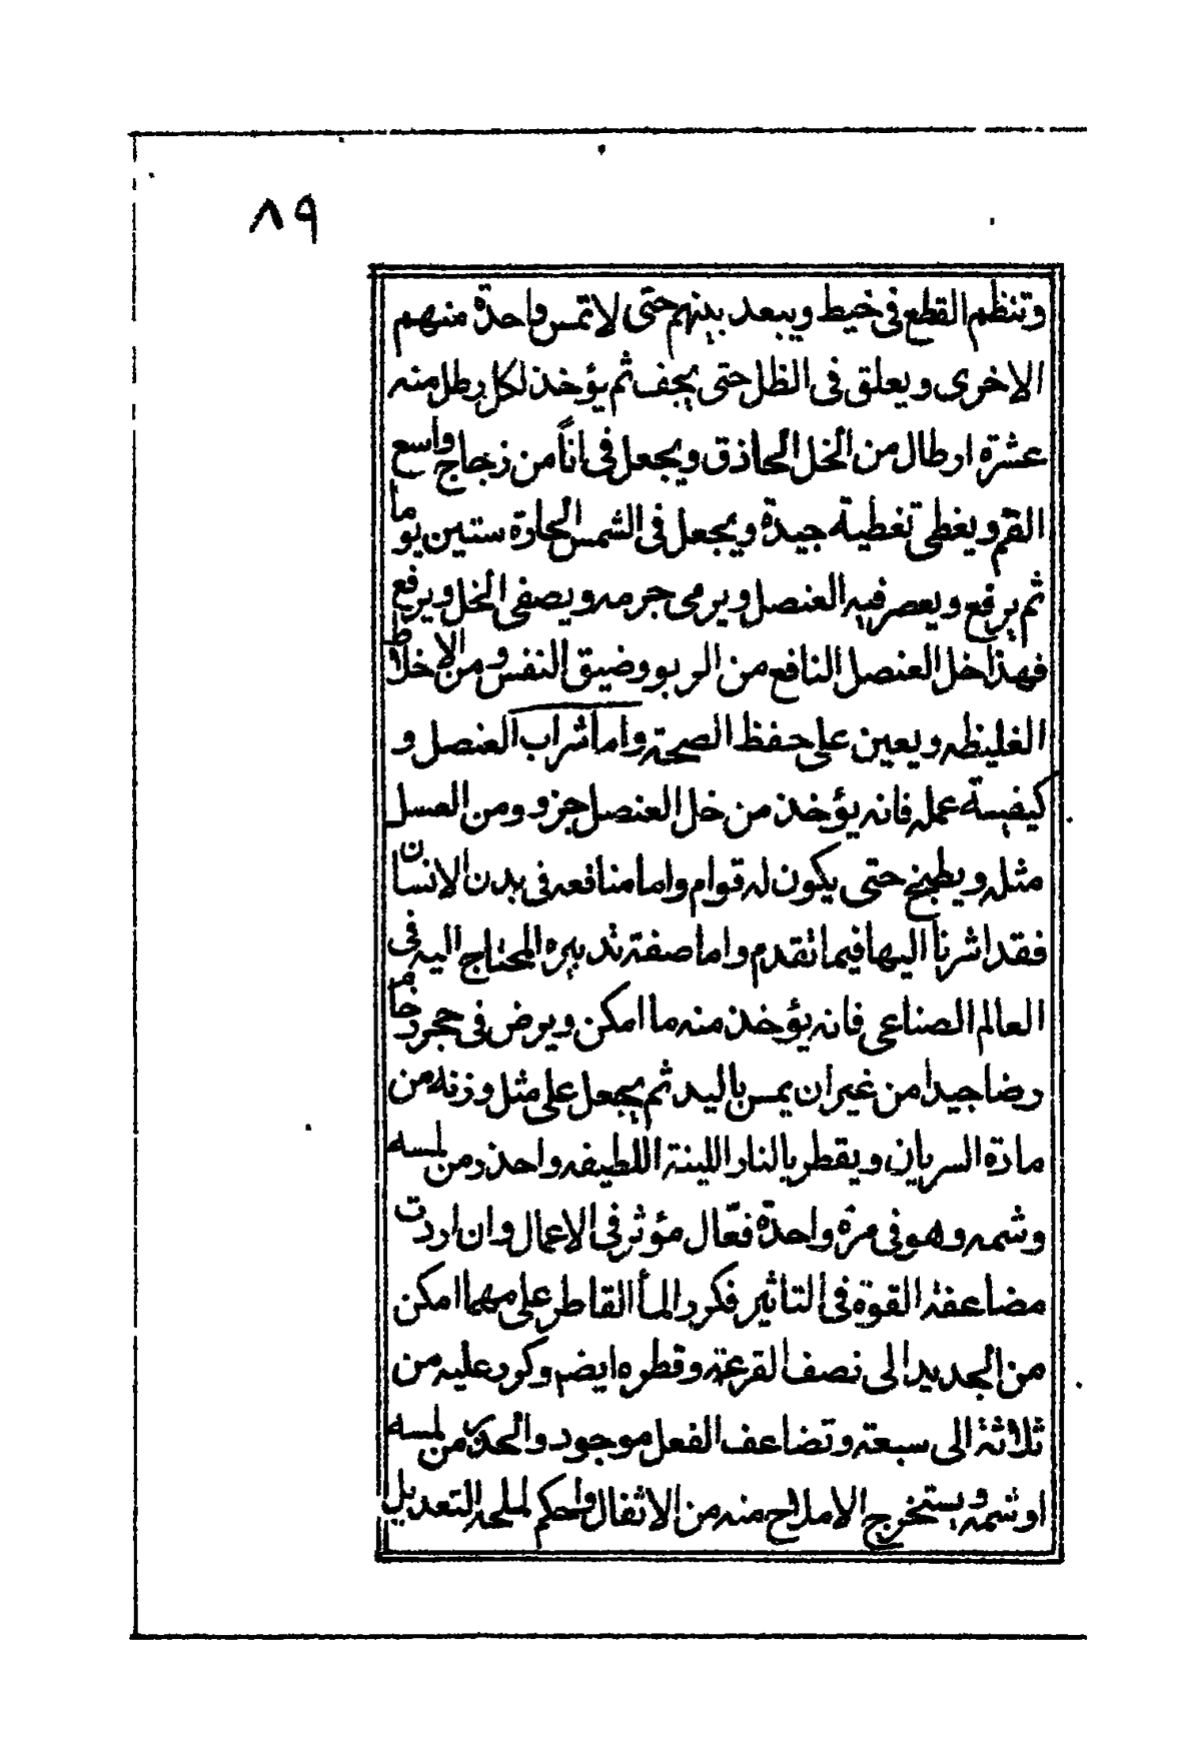 ٨٩
وتنظم القطع فى خيط ويبعد بينهم حتى لا تمس واحدة منهم
الاخرى ويعلق فى الظل حتى يجف ثم يؤخذ لكل رطل منه
عشرة ارطال من الخل الحاذق ويجعل فى اناً من زجاج واسع
الفم ويغطى تغطية جيدة ويجعل فى الشمس الحارة ستين يوما
ثم يرفع ويعصر فيه العنصل ويرمى جرمه ويصفى الخل ويرفع
فهذا خل العنصل النافع من الربو وضيق النفس ومن الاخلاط
الغليظه ويعين على حفظ الصحة واما شراب العنصل و
كيفية عمله فانه يؤخذ من خل العنصل جزو ومن العسل
مثله ويطبخ حتى يكون له قوام واما منافعه فى بدن الانسان
فقد اشرنا اليها فيما تقدم واما صفة تدبيره المحتاج اليه فى
العالم الصناعى فانه يؤخذ منه ما امكن ويرض فى حجر رخام
رضا جيدا من غير ان يمس باليد ثم يجعل على مثل وزنه من
مادة السريان ويقطر بالنار اللينة اللطيفه واحذر من لمسه
وشمه وهو فى مرة واحدة فعّال مؤثر فى الاعمال وان اردت
مضاعفة القوة فى التاثير فكرر المأ القاطر على مهما امكن
من الجديد الى نصف القرعة وقطره ايضم وكرر عليه من
ثلاثة الى سبعة وتضاعف الفعل موجود والحذر من لمسه
او شمه ويستخرج الاملاح منه من الاثفال واحكم لملحه التعديل